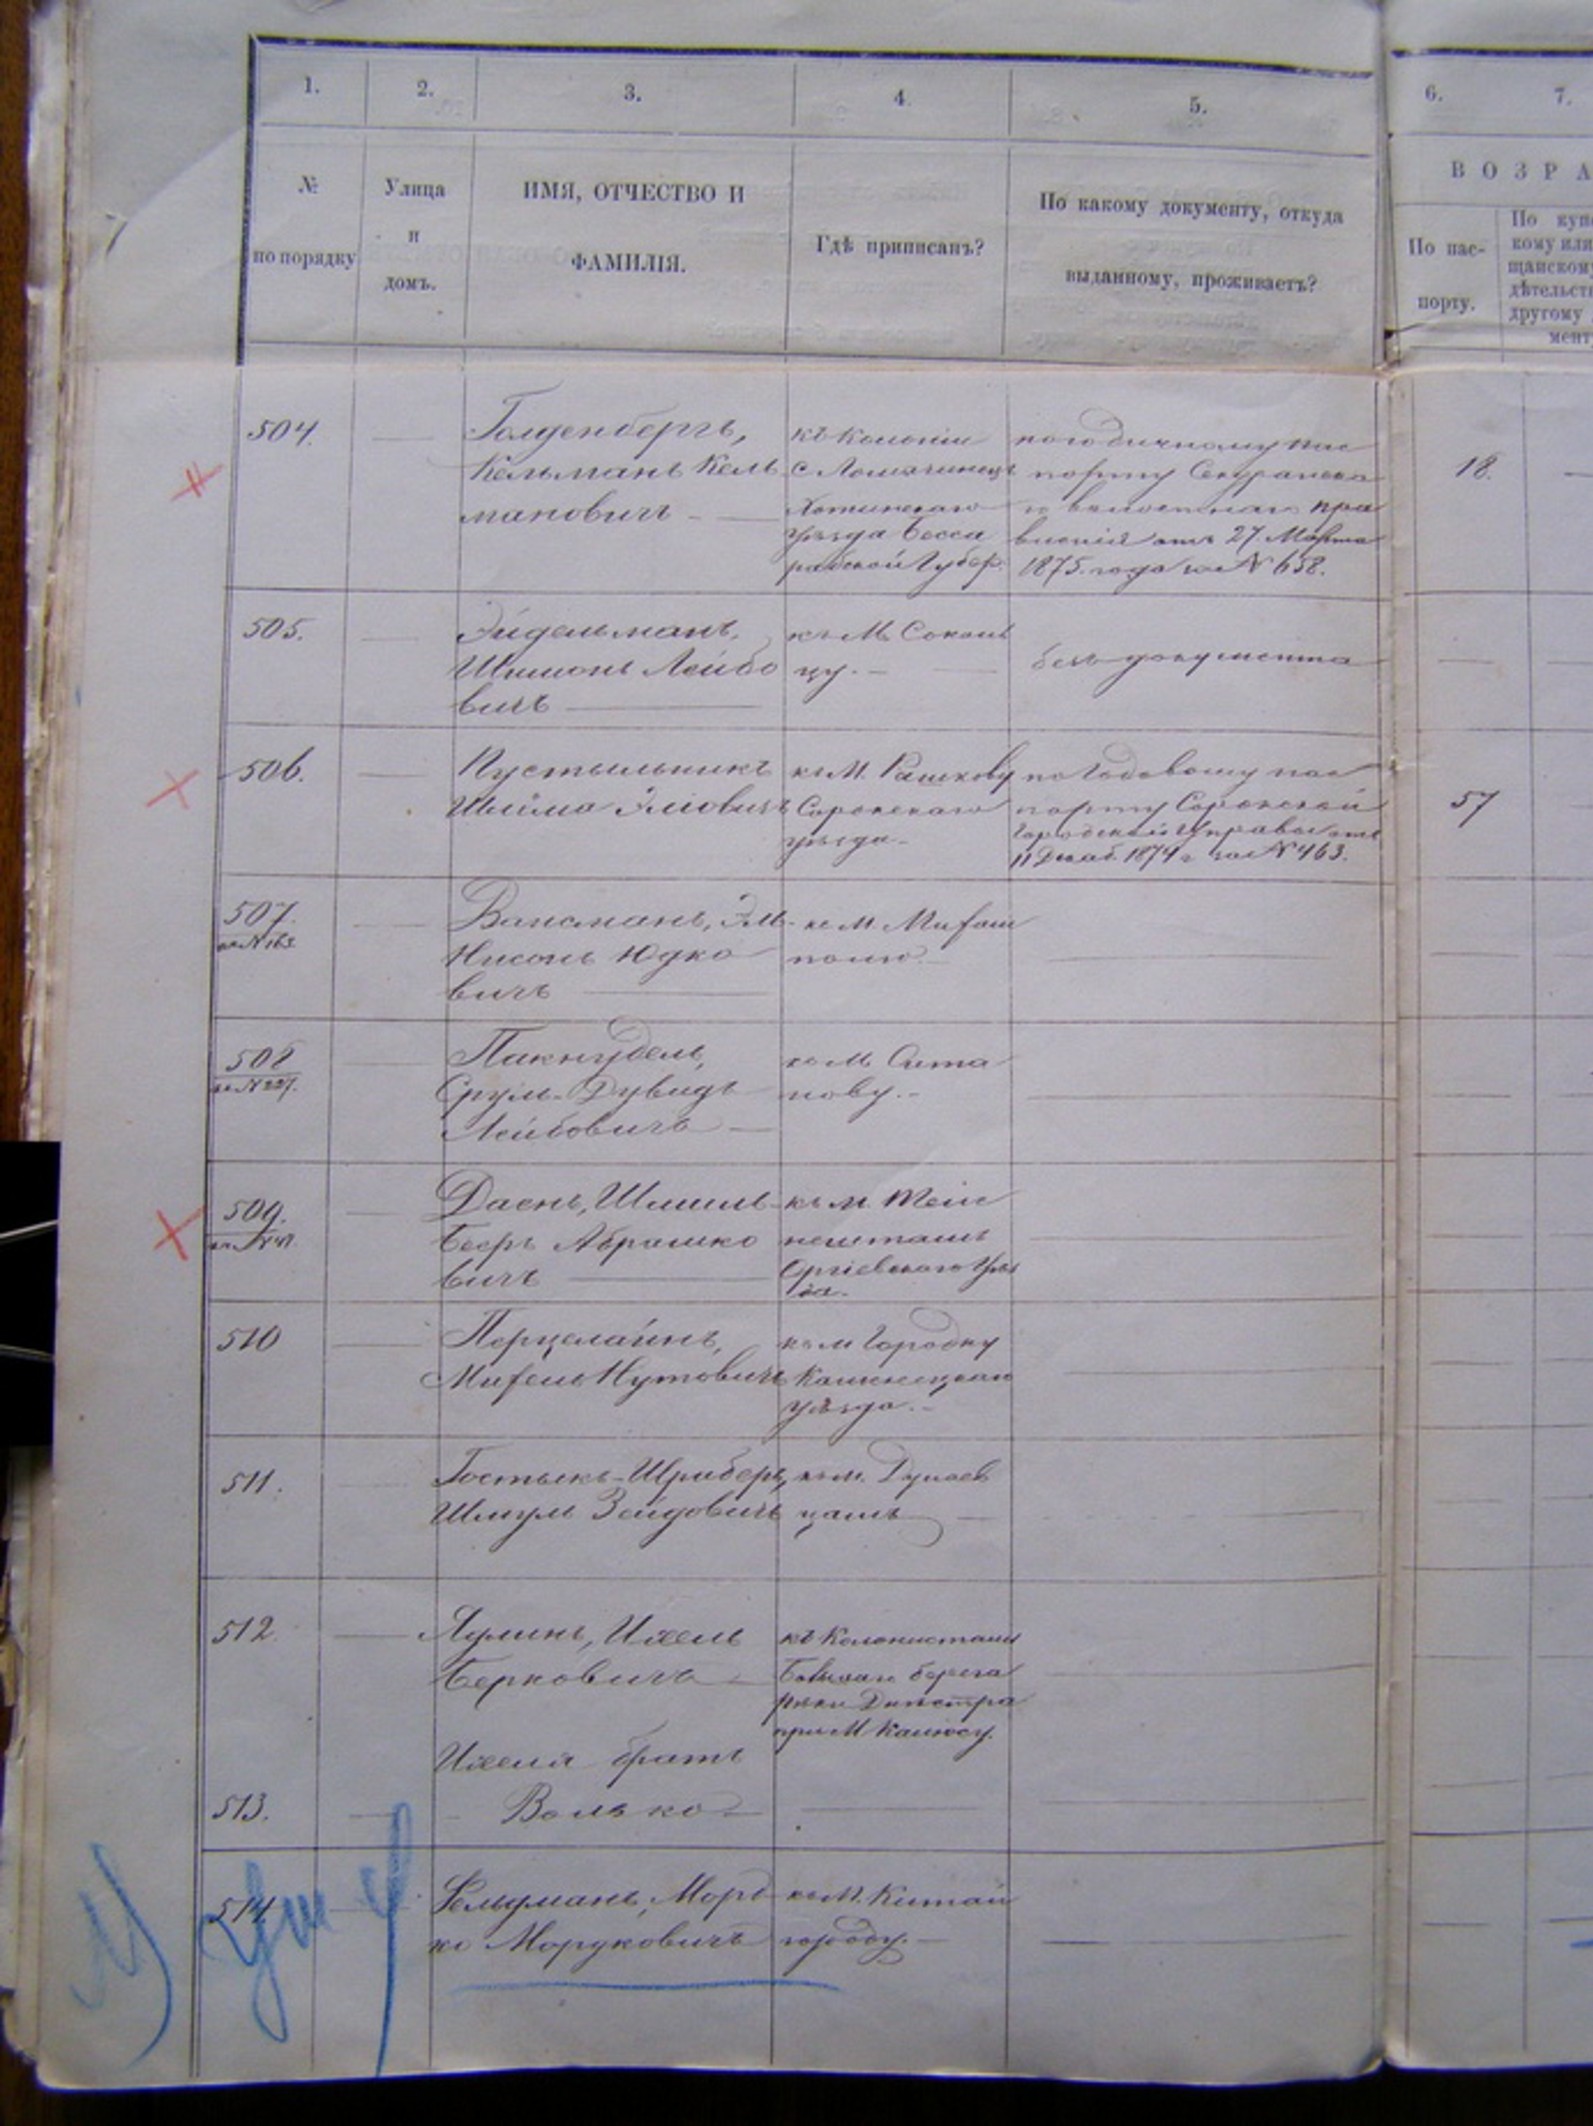 1. 2. 3. 4. 5. 6. 7.
№
по порядку
Улица
и
домъ.
ИМЯ, ОТЧЕСТВО И
ФАМИЛІЯ.
Гдѣ приписанъ?
По какому документу, откуда
выданному, проживаетъ?
ВОЗРА
По пас-
порту.
По куп
кому или
щанскому
дѣтельст
другому
мент
504.
Голденбергъ,
Кельманъ Кель
мановичъ
къ колоніи
с Ломачинецъ
Хотинскаго
уѣзда Бесса
рабской Губер.
погодичному пас
порту Секуранска
го волостнаго пра
вленія отъ 27 Марта
1875. года за № 658.
18.
505.
Эйдельманъ,
Шимонъ Лейбо
вичъ
къ М. Сокол
цу.
безъ документа
506.
Пустыльникъ
Шлёма Эліовичъ
къ М. Рашкову
Сорокскаго
уѣзда.
по Годовому пас
порту Сорокской
Городской Управы отъ
11 Декаб. 1874 г за № 463.
57
507.
Ваисманъ, Эль-
Нисонъ Юдко
вичъ
къ М. Миѳаи
полю.
508
Пакнудель,
Срулъ-Дувидъ
Лейбовичъ
къ М.
нову.
509.
Даенъ, Шмиль-
Беоръ Абрашко
вичъ
къ м. Теле
нештамъ
Оргіевскаго Уѣз
да.
510
Перцелайнъ,
Миѳель Нутовичъ
къ м Городку
Каменецкаго
уѣзда.
511.
Гостыкъ-Шрибера,
Шмулъ Зейдовичъ
къ м. Дунаев
цамъ
512.
Ядлинъ, Ихель
Берковичъ
къ Колонистамъ
берега
рѣки Днѣстра
при М Калюсу.
Ихеля братъ
513.
Волько
514.
Фельдманъ, Морд
ко Мордковичъ
къ М. Китай
городу.